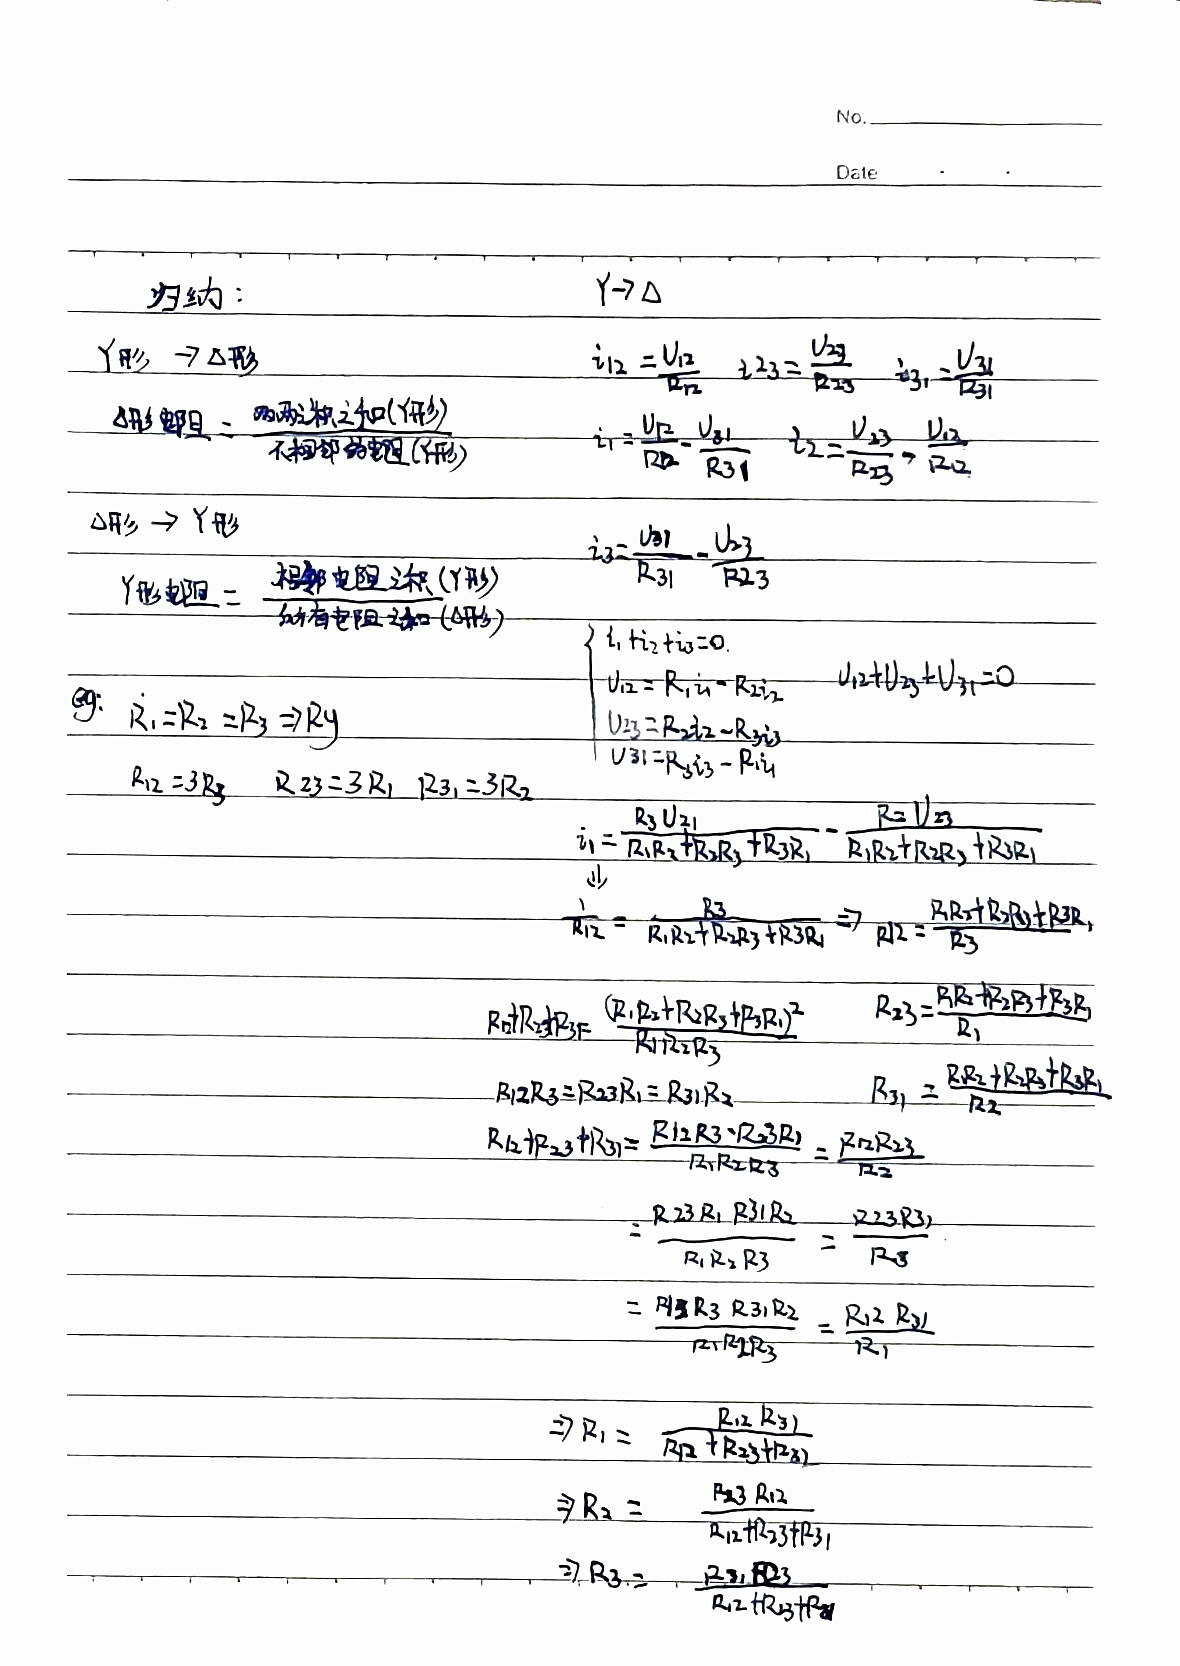 No.
Date
归纳：
Y形 → △形
△形电阻 = 两两之积之和(Y形) / 不相邻的电阻(Y形)
△形 → Y形
Y形电阻 = 相邻电阻之积(Y形) / 所有电阻之和(△形)
eg: R1=R2=R3 ⇒ RY
R12=3R3 R23=3R1 R31=3R2
Y→△
i12=U12/R12 i23=U23/R23 i31=U31/R31
i1=U12/R12-U31/R31 i2=U23/R23-U12/R12
i3=U31/R31-U23/R23
i1+i2+i3=0.
U12=R1i1-R2i2 U12+U23+U31=0
U23=R2i2-R3i3
U31=R3i3-R1i1
i1=R3U21/(R1R2+R2R3+R3R1)-R2U23/(R1R2+R2R3+R3R1)
⇓
1/R12=R3/(R1R2+R2R3+R3R1) ⇒ R12=(R1R2+R2R3+R3R1)/R3
R12+R23+R31=(R1R2+R2R3+R3R1)²/(R1R2R3) R23=(R1R2+R2R3+R3R1)/R1
R12R3=R23R1=R31R2 R31=(R1R2+R2R3+R3R1)/R2
R12+R23+R31=(R12R3·R23R1)/(R1R2R3)=R12R23/R2
=(R23R1 R31R2)/(R1R2R3)=R23R31/R3
=(R12R3 R31R2)/(R1R2R3)=R12R31/R1
⇒R1=R12R31/(R12+R23+R31)
⇒R2=R23R12/(R12+R23+R31)
⇒R3=R31R23/(R12+R23+R31)